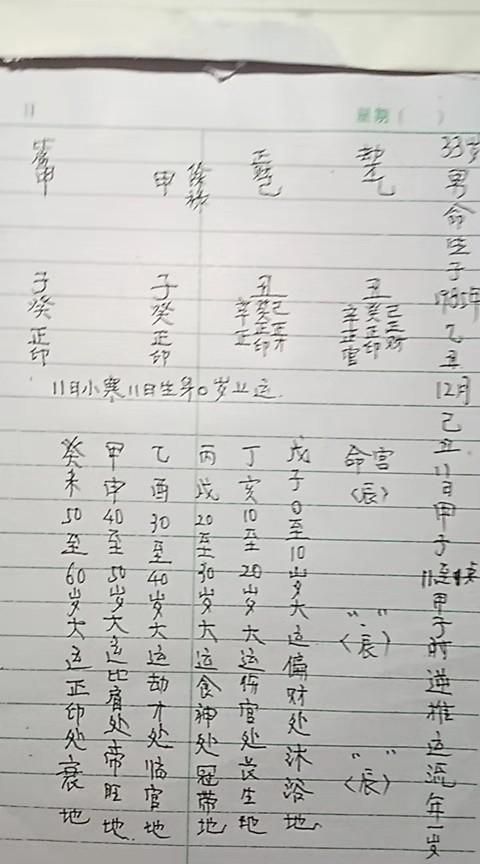 11
星期（　）
33岁男命生于1985年乙丑12月己丑11日甲子11至1点甲子时逆推运流年一岁
劫才乙
正财己
甲
日元
甲
丑
己正财
癸正印
辛正官
丑
己正才
癸正印
辛正
子癸正印
子癸正印
11日小寒11日生第0岁上运
命宫
〈辰〉
〃〃
〈辰〉
〃〃
〈辰〉
戊子0至10岁大运偏财处沐浴地
丁亥10至20岁大运伤官处长生地
丙戌20至30岁大运食神处冠带地
乙酉30至40岁大运劫才处临官地
甲申40至50岁大运比肩处帝旺地
癸未50至60岁大运正印处衰地